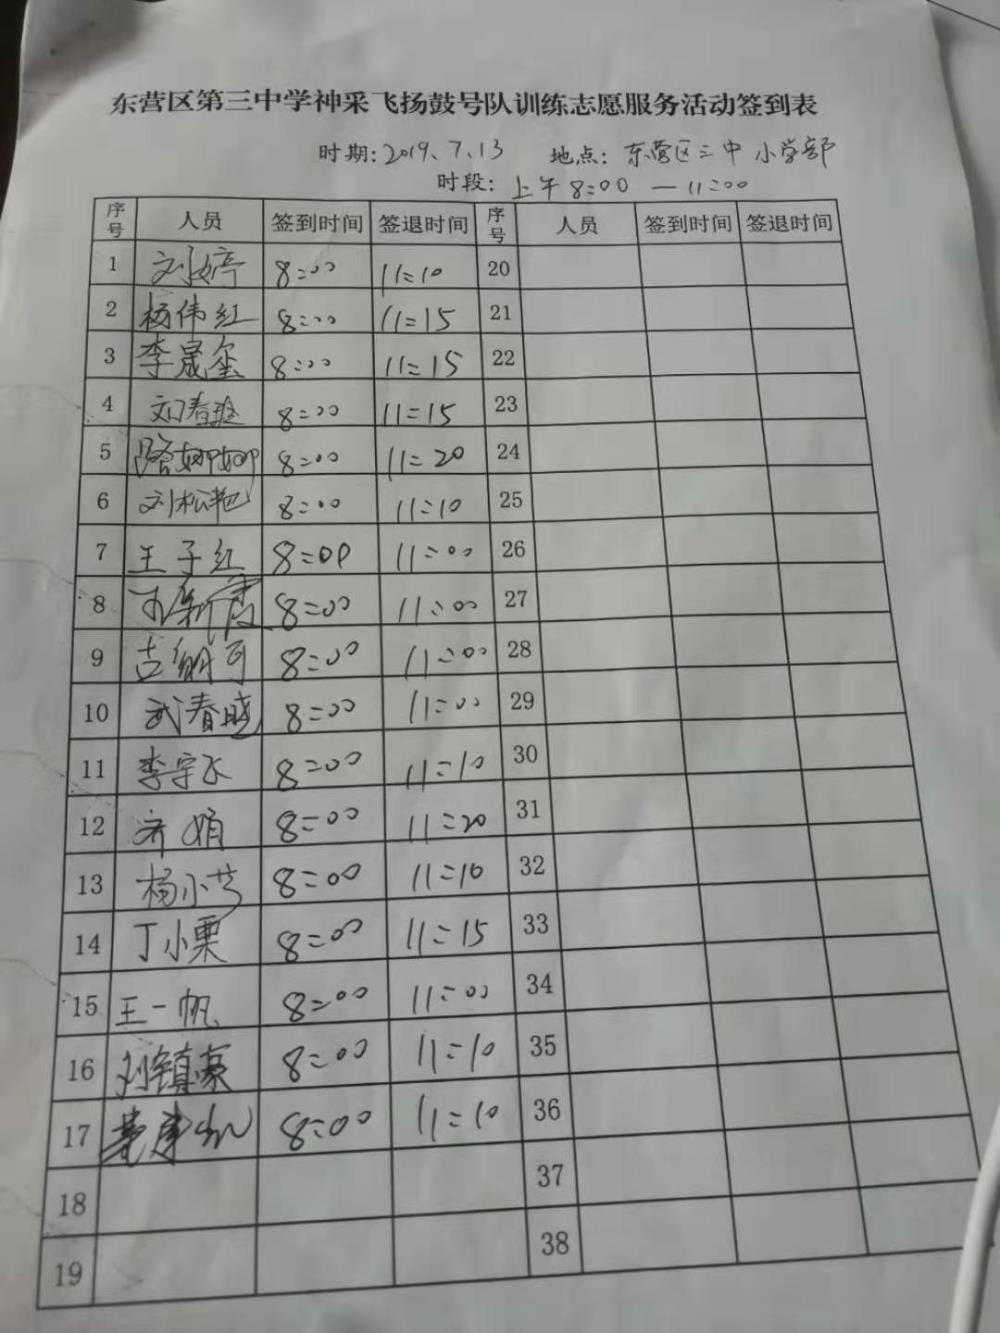 东营区第三中学神采飞扬鼓号队训练志愿服务活动签到表
时期:2019.7.13 地点:东营区三中小学部
时段:上午8:00—11:00
序号 人员 签到时间 签退时间 序号 人员 签到时间 签退时间
1 刘婷 8:00 11:10 20
2 杨伟红 8:00 11:15 21
3 李晟玺 8:00 11:15 22
4 刘春 8:00 11:15 23
5 路娜娜 8:00 11:20 24
6 刘松艳 8:00 11:10 25
7 王子红 8:00 11:00 26
8 新霞 8:00 11:00 27
9 古 可 8:00 11:00 28
10 武春晓 8:00 11:00 29
11 李宇飞 8:00 11:10 30
12 齐娟 8:00 11:20 31
13 杨小芳 8:00 11:10 32
14 丁小栗 8:00 11:15 33
15 王一帆 8:00 11:00 34
16 刘镇豪 8:00 11:10 35
17 8:00 11:10 36
18 37
19 38